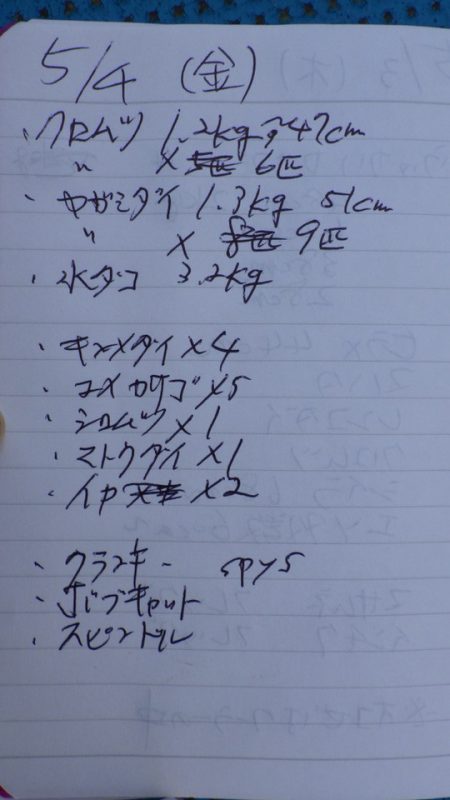 5/4 (金)
・クロムツ 1.2kg 47cm
〃 × 5匹 6匹
・ヤガミダイ 1.3kg 51cm
〃 × 8匹 9匹
・水ダコ 3.2kg
・キンメダイ×4
・ユメカサゴ×5
・シロムツ×1
・マトウダイ×1
・イカ ×2
・クランキー spy5
・ボブキャット
・スピンドル